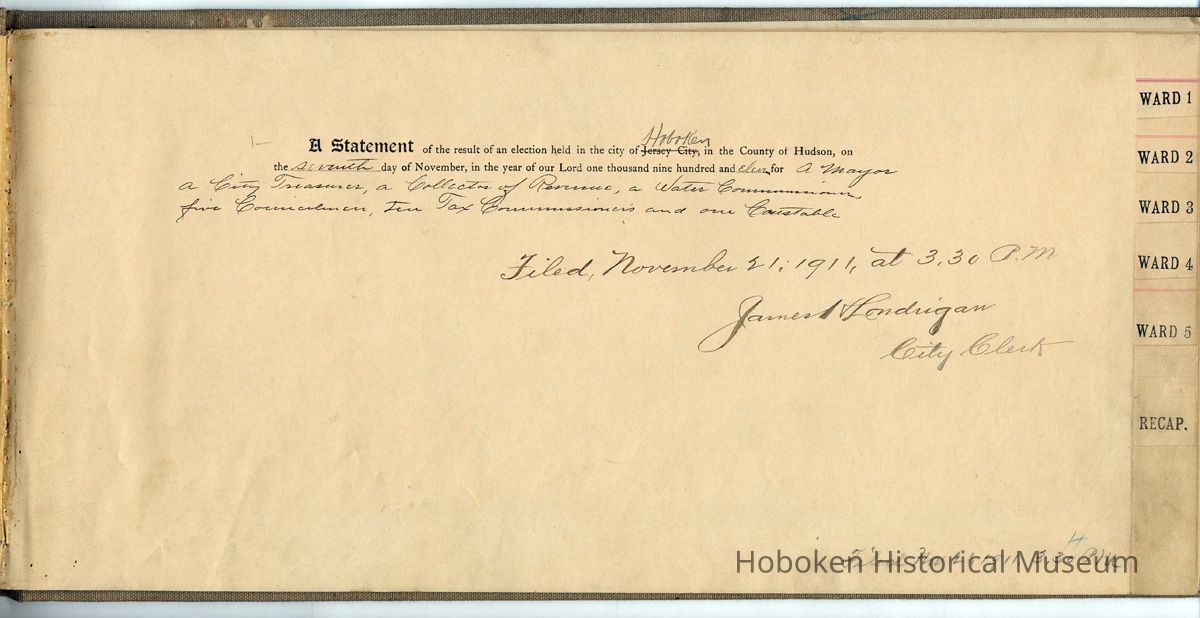 Hoboken
A Statement of the result of an election held in the city of Jersey City, in the County of Hudson, on
the seventh day of November, in the year of our Lord one thousand nine hundred and eleven for A Mayor
a City Treasurer, a Collector of Revenue, a Water Commissioner,
five Councilmen, two Tax Commissioners and one Constable
Filed, November 21, 1911, at 3.30 P.M
James H Londrigan
City Clerk
WARD 1
WARD 2
WARD 3
WARD 4
WARD 5
RECAP.
Hoboken Historical Museum